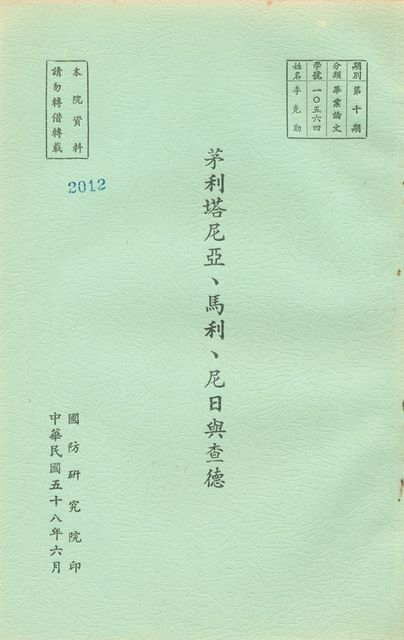 期別 第十期
分類 畢業論文
學號 一〇五六四
姓名 李克勤
茅利塔尼亞、馬利、尼日與查德
本院資料
請勿轉借轉載
2012
國防研究院印
中華民國五十八年六月